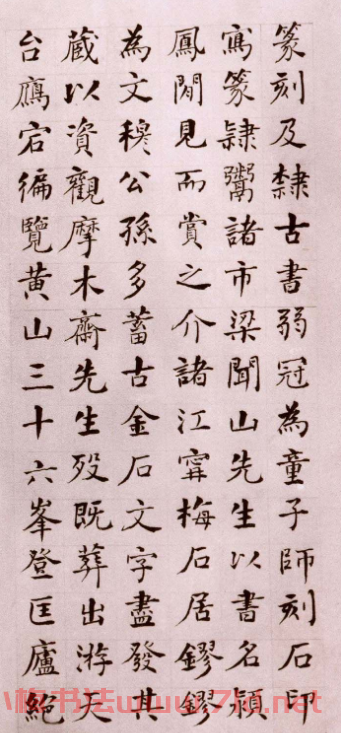 篆刻及隸古書弱冠為童子師刻石印
寫篆隸鬻諸市梁聞山先生以書名潁
鳳閒見而賞之介諸江寧梅石居鏐鏐
為文穆公孫多蓄古金石文字盡發其
藏以資觀摩木齋先生歿既葬出游天
台鴈宕徧覽黃山三十六峯登匡廬絕
书法www.7